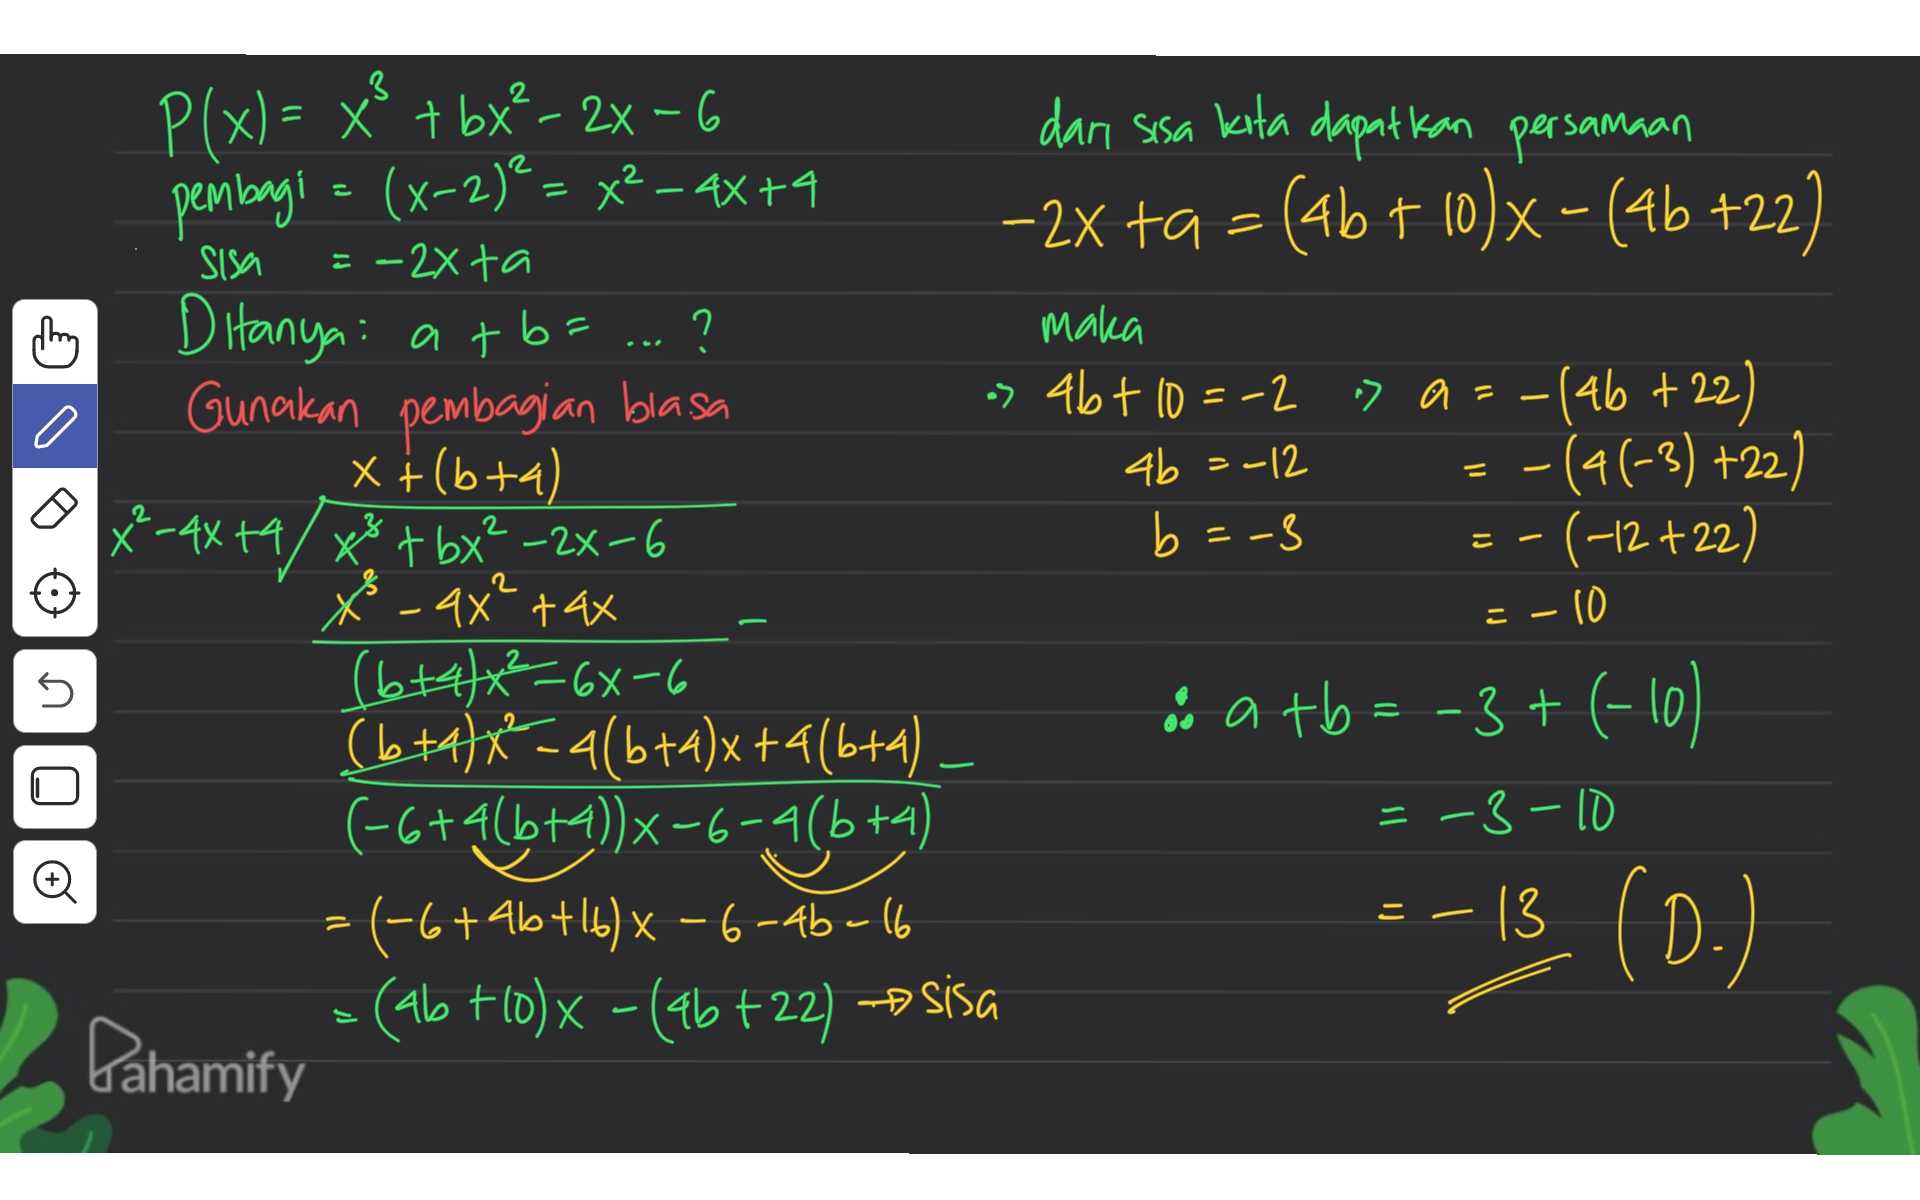 P(x) = x³ + bx² - 2x - 6
pembagi = (x-2)² = x² - 4x + 4
sisa = -2x + a
Ditanya: a + b = ... ?
Gunakan pembagian biasa
x + (b+4)
x² - 4x + 4 / x³ + bx² - 2x - 6
x³ - 4x² + 4x -
(b+4)x² - 6x - 6
(b+4)x² - 4(b+4)x + 4(b+4) -
(-6+4(b+4))x - 6 - 4(b+4)
= (-6 + 4b + 16)x - 6 - 4b - 16
= (4b + 10)x - (4b + 22) → sisa
dari sisa kita dapatkan persamaan
-2x + a = (4b + 10)x - (4b + 22)
maka
→ 4b + 10 = -2
4b = -12
b = -3
→ a = -(4b + 22)
= -(4(-3) + 22)
= -(-12 + 22)
= -10
∴ a + b = -3 + (-10)
= -3 - 10
= -13 (D.)
Pahamify